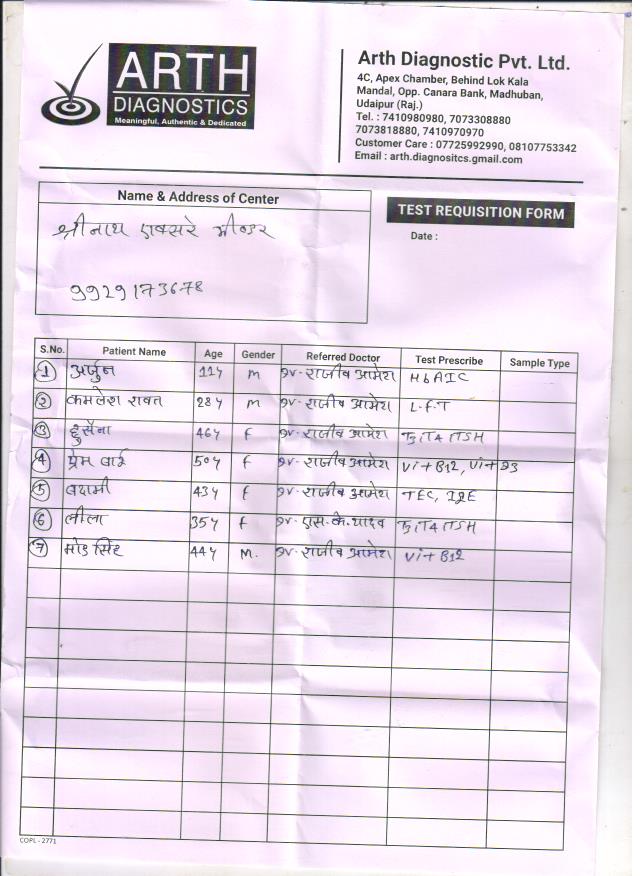 ARTH
DIAGNOSTICS
Meaningful, Authentic & Dedicated
Arth Diagnostic Pvt. Ltd.
4C, Apex Chamber, Behind Lok Kala
Mandal, Opp. Canara Bank, Madhuban,
Udaipur (Raj.)
Tel. : 7410980980, 7073308880
7073818880, 7410970970
Customer Care : 07725992990, 08107753342
Email : arth.diagnositcs.gmail.com
Name & Address of Center
श्रीनाथ एक्सरे भीण्डर
9929173678
TEST REQUISITION FORM
Date :
S.No. Patient Name Age Gender Referred Doctor Test Prescribe Sample Type
1 अर्जुन 11y M डॉ- राजीव आमेरा HbA1C
2 कमलेश रावत 28y M डॉ- राजीव आमेरा L.F.T
3 हुसैना 46y F डॉ- राजीव आमेरा T3T4TSH
4 प्रेम बाई 50y F डॉ- राजीव आमेरा Vit B12, Vit D3
5 बदामी 43y F डॉ- राजीव आमेरा TEC, IgE
6 लीला 35y F डॉ- एस.के.यादव T3T4TSH
7 मोड सिंह 44y M. डॉ- राजीव आमेरा Vit B12
COPL - 2771